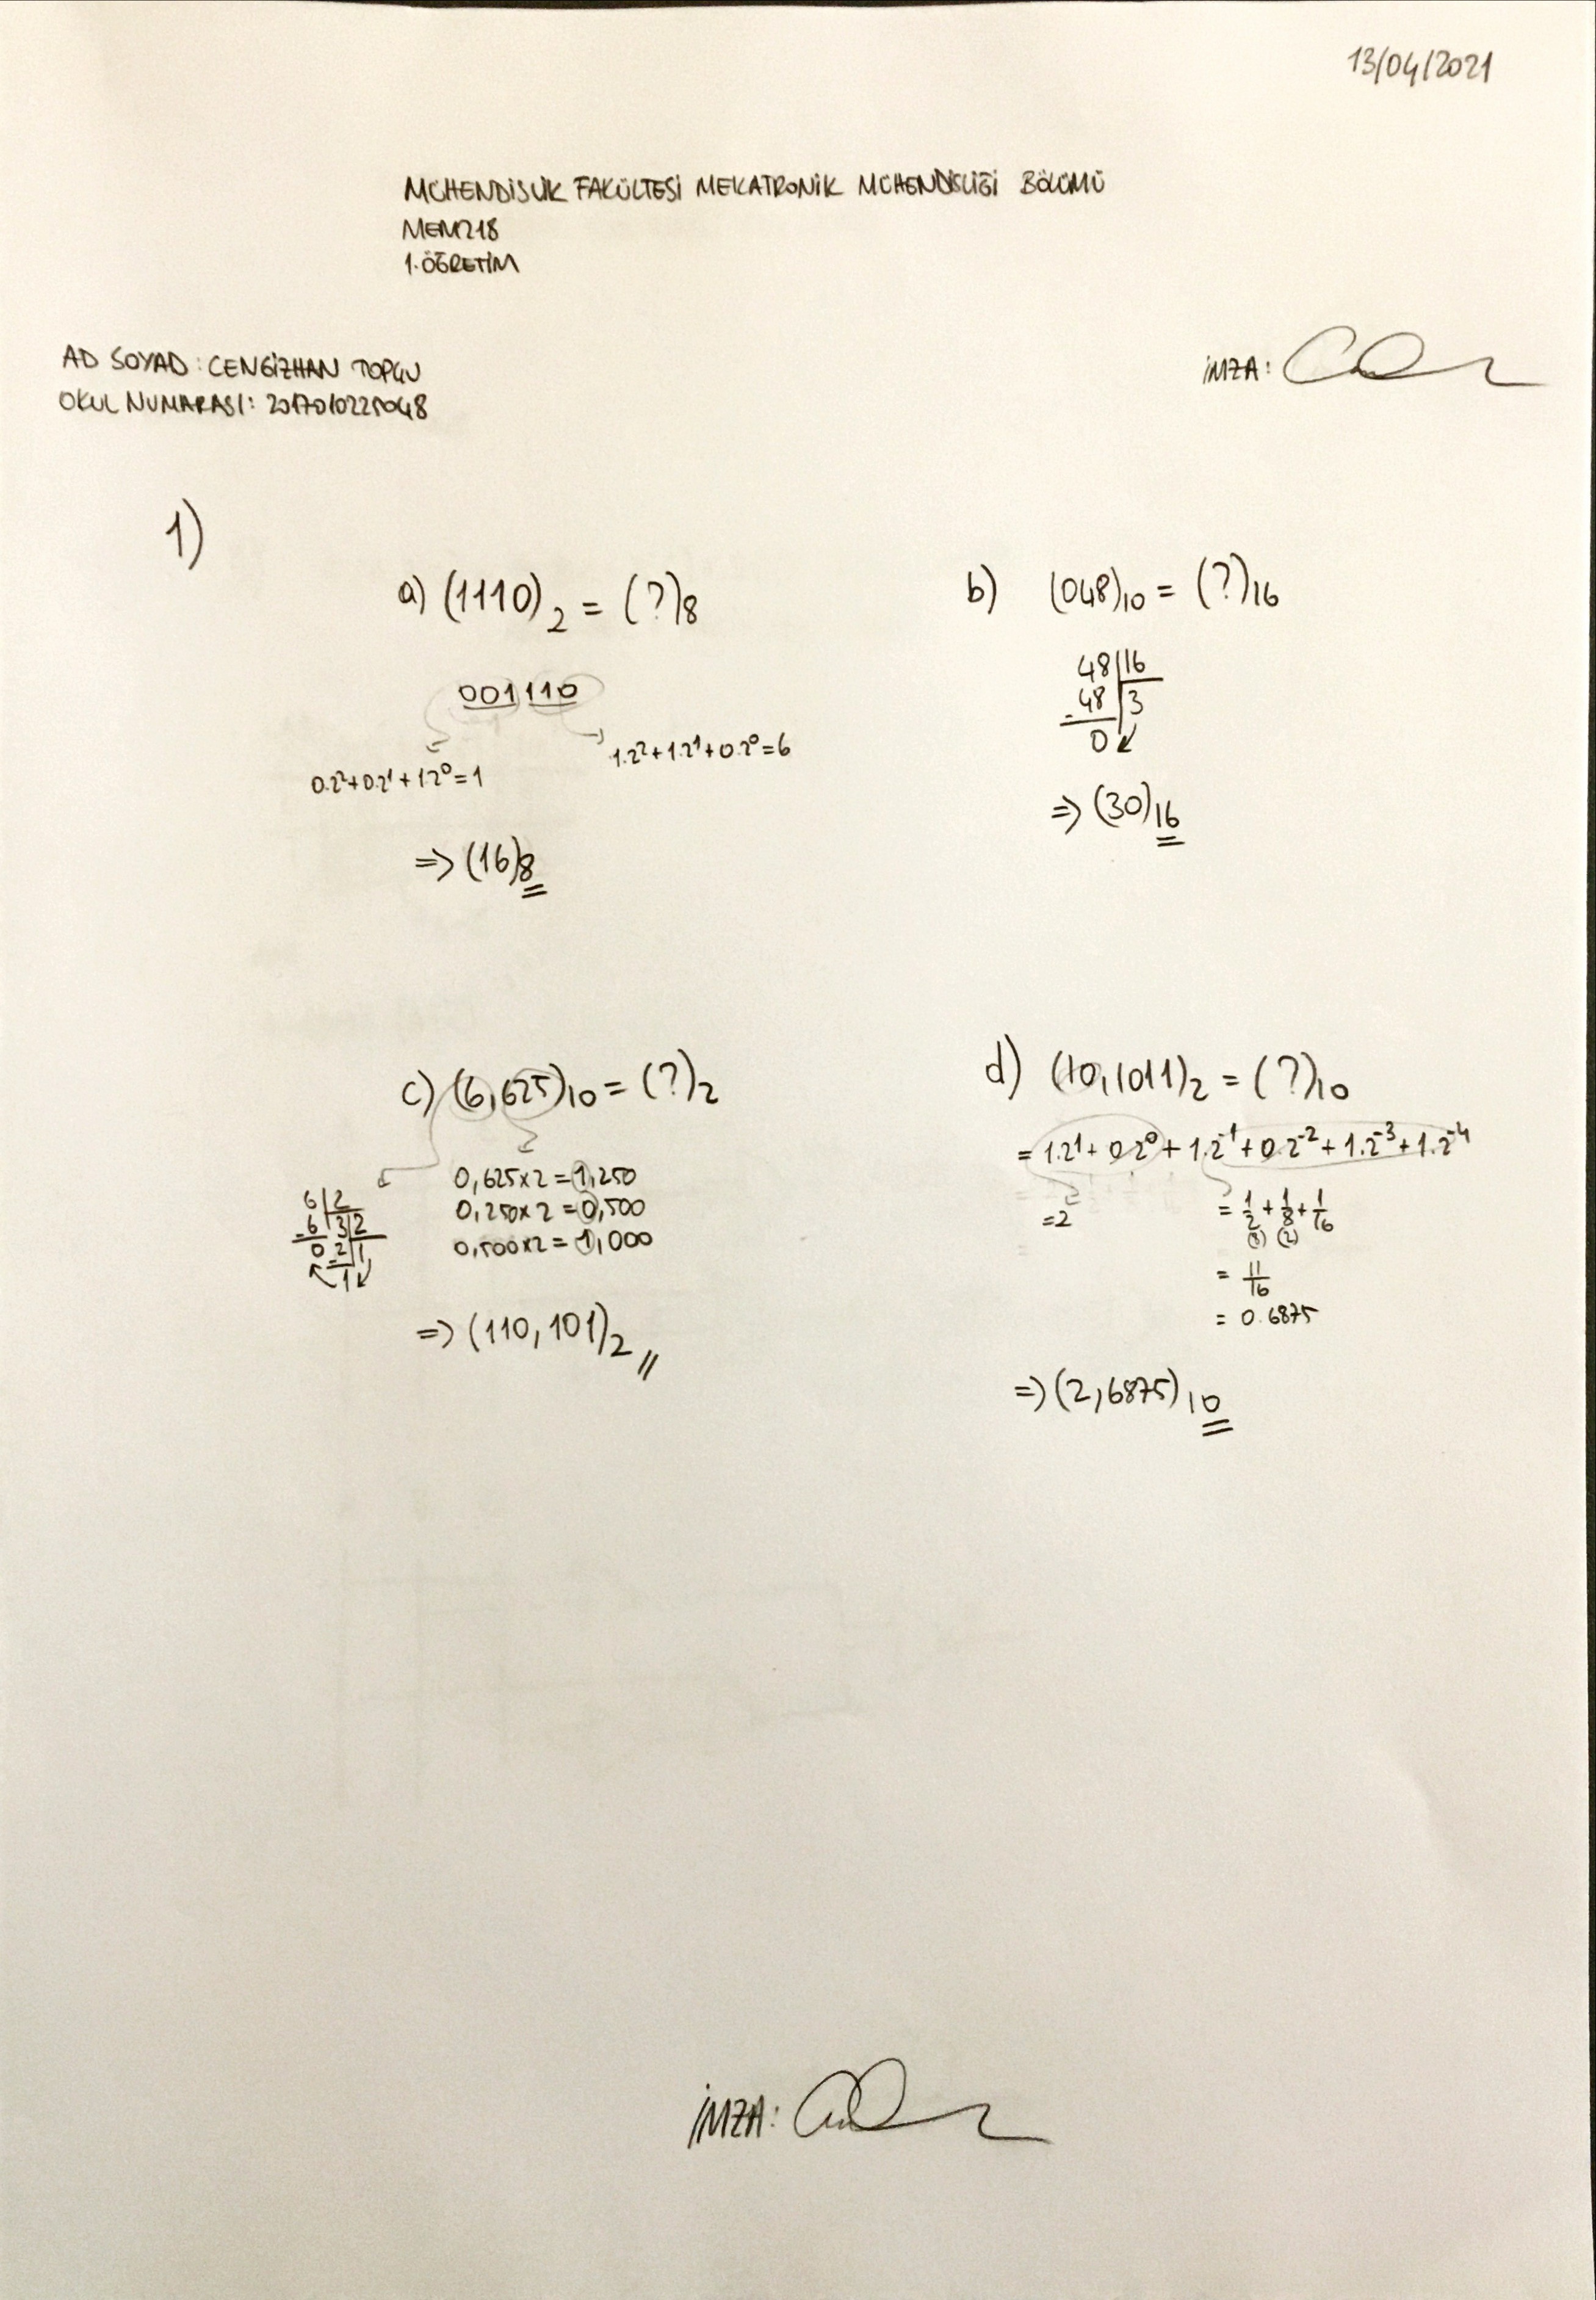 13/04/2021
MÜHENDİSLİK FAKÜLTESİ MEKATRONİK MÜHENDİSLİĞİ BÖLÜMÜ
MEM218
1.ÖĞRETİM
AD SOYAD : CENGİZHAN TOPÇU
İMZA:
OKUL NUMARASI: 2017010225048
1)
a) (1110)₂ = (?)₈
001110
0.2²+0.2¹+1.2⁰=1
1.2²+1.2¹+0.2⁰=6
=> (16)₈
b) (048)₁₀ = (?)₁₆
48 16
-48 3
0
=> (30)₁₆
c) (6,625)₁₀ = (?)₂
6 2
-6 3 2
0 -2 1
1
0,625x2=1,250
0,250x2=0,500
0,500x2=1,000
=> (110,101)₂
d) (10,1011)₂ = (?)₁₀
= 1.2¹+0.2⁰+1.2⁻¹+0.2⁻²+1.2⁻³+1.2⁻⁴
=2
= 1/2 + 1/8 + 1/16
(8) (2)
= 11/16
= 0.6875
=> (2,6875)₁₀
İMZA: